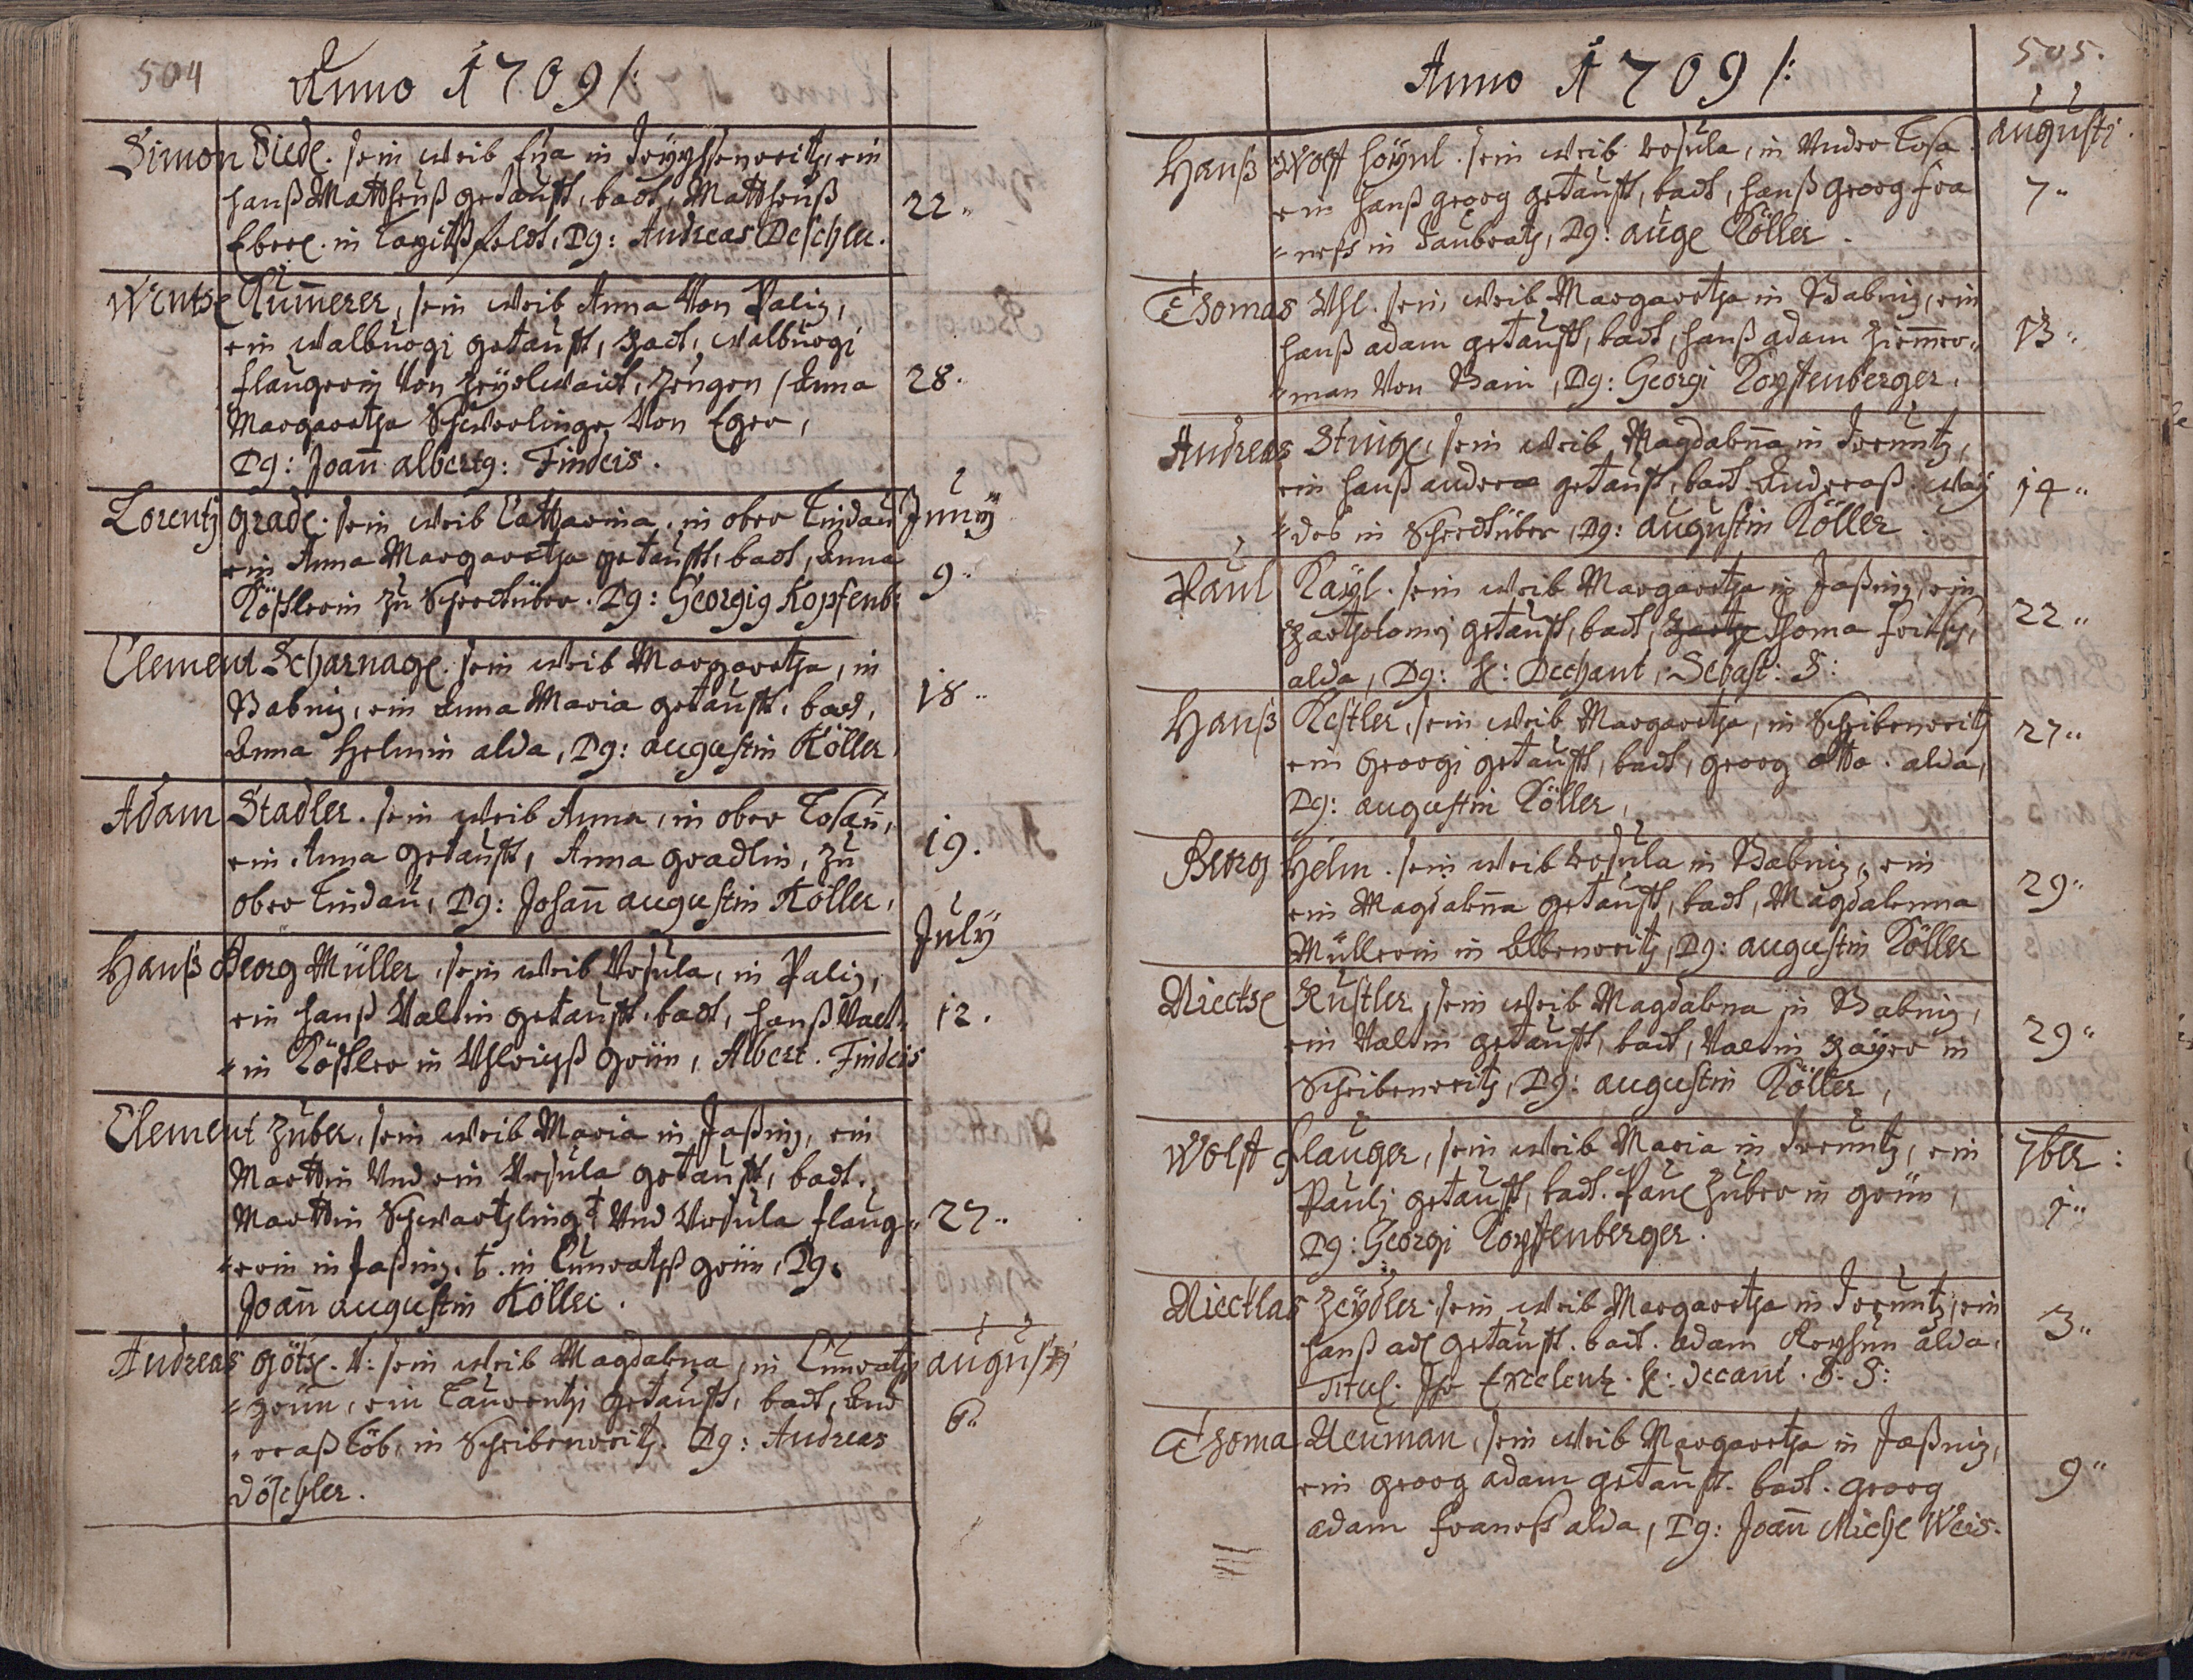 504
Anno 1709 /:
Simon Diedl. sein weib Eva in Treyhenreitz, ein
hanß Mattheuß getaufft, badt, Mattheuß
Eberl. in Kagitßfeldt, Dg: Andreas Deschler.
22"
Wentzl Kummerer, sein weib Anna Von Paliz,
ein walburgi getaufft, Badt, walburgi
flaugerin Von Zeyrlwaidt, zeugen / Anna
Margaretha Schwerlinge Von Eger,
Dg: Joan albertg: Findeis.
28.
Lorentz gradl. sein weib Catharina, in ober lindau
ein Anna Margaretha getaufft, badt, Anna
Kößlerin zu Scherdtüber. Dg: Georgig Kopfenb:
Juny
9"
Clement Scharnagl. sein weib Margaretha, in
Babniz, ein Anna Maria getaufft, badt,
Anna Helmin alda, Dg: augustin Köller
18"
Adam Stadler. sein weib Anna, in ober Losau,
ein Anna getaufft, Anna gradlin, zu
ober lindau, Dg: Johann augustin Köller,
19.
Hanß Georg Müller, sein weib Ursula, in Paliz,
ein hanß Valtin getaufft, badt, hanß Valt"
"in Kößler in Ulrichß grün, Albert. Findeis
July
12.
Clement Zuber, sein weib Maria in Jaßniz, ein
Marttin Und ein Ursula getaufft, badt.
Marttin Schwartzling t Und Ursula flaug"
"erin in Jaßniz. t. in Cunratzß grün, Dg.
Joan augustin Köller.
27"
Andreas götzl. V: sein weib Magdalena, in Cunratz
"grün, ein Laurentzi getaufft, badt, And
"reaß Löb, in Scheibenreitz. Dg: Andreas
Döschler.
augusti
6"
505.
Anno 1709 /:
Hanß Wolff höynl. sein weib Ursula, in Under Losa
ein hanß georg getaufft, badt, hanß georg fra
"neß in Taubratz, Dg: aug: Köller.
augusti.
7"
Thomas Uhl. sein weib Margaretha in Babniz, ein
hanß adam getaufft, badt, hanß adam Zimmer"
"man Von Bam, Dg: Georgi Kopffenberger.
13"
Andreas Stingl, sein weib Magdalena in Treunitz,
ein hanß andere getaufft, badt Andreaß. way
"der in Scherdtüber, Dg: augustin Köller.
14"
Paul Kayl. sein weib Margaretha in Jaßniz, ein
Bartholomi getaufft, badt, Thoma fritsch,
alda, Dg: H: Dechant, Sebast: S:
22"
Hanß Kestler, sein weib Margaretha, in Scheibenreitz
ein georgi getaufft, badt, georg otto. alda,
Dg: augustin Köller,
27"
Georg Helm. sein weib Ursula in Babniz, ein
ein Magdalena getaufft, badt, Magdalenna
Müllerin in Albenreitz, Dg: augustin Köller
29"
Nieckl Küstler, sein weib Magdalena in Babniz,
ein Valtin getaufft, badt, Valtin Bayer in
Scheibenreitz, Dg: augustin Köller,
29"
Wolff flauger, sein weib Maria in Treunitz, ein
Pauli getaufft, badt. Paul Zuber in grün,
Dg: Georgi Kopffenberger.
7ber:
1"
Niecklas Zeydler. sein weib Margaretha in Treunitz, ein
hanß adl getaufft. badt. adam Royhun alda.
Titul. Ihr Excelentz. H: Decant. S. S:
3"
Thoma Neuman, sein weib Margaretha in Jaßniz,
ein georg adam getaufft. badt. georg
adam franeß alda, Dg: Joan Michl Weis.
9"